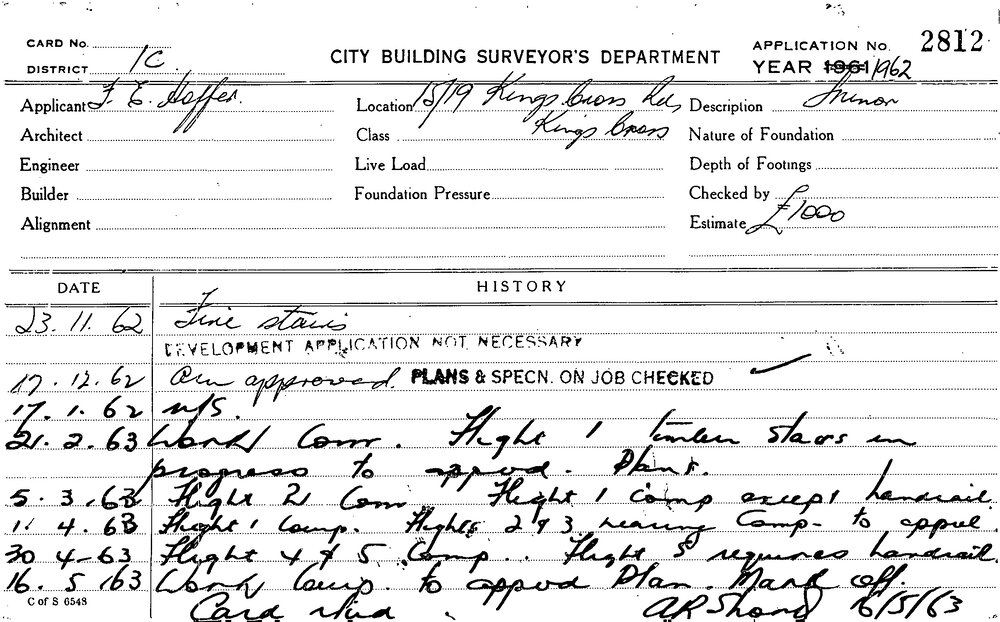 CARD No.
DISTRICT 1C.
CITY BUILDING SURVEYOR'S DEPARTMENT
APPLICATION No. 2812
YEAR 1961/1962
Applicant F. E. Hoffer. Location 15/19 Kings Cross Rd, Description Minor
Architect Class Kings Cross Nature of Foundation
Engineer Live Load Depth of Footings
Builder Foundation Pressure Checked by
Alignment Estimate £1000
DATE HISTORY
23. 11. 62 Fire stairs
DEVELOPMENT APPLICATION NOT NECESSARY
17. 12. 62 approved. PLANS & SPECN. ON JOB CHECKED
17. 1. 62 N/S.
21. 2. 63 Work Com. Flight 1 timber stairs in
progress to approd. Plans.
5. 3. 63 Flight 2 Com Flight 1 comp except handrail.
1. 4. 63 Flight 1 Comp. Flights 2 & 3 nearing Comp- to
30 4-63 Flight 4 & 5 Comp.. Flight 5 requires handrail.
16. 5. 63 Work Comp. to approd Plan. Mark off.
C of S 6548
Card 16/5/63